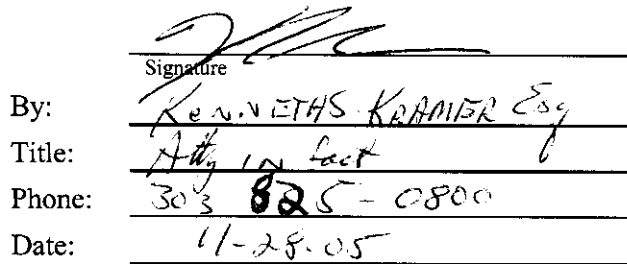 Signature
By: KENNETH S. KRAMER Esq
Title: Atty in fact
Phone: 303 825-0800
Date: 11-28-05